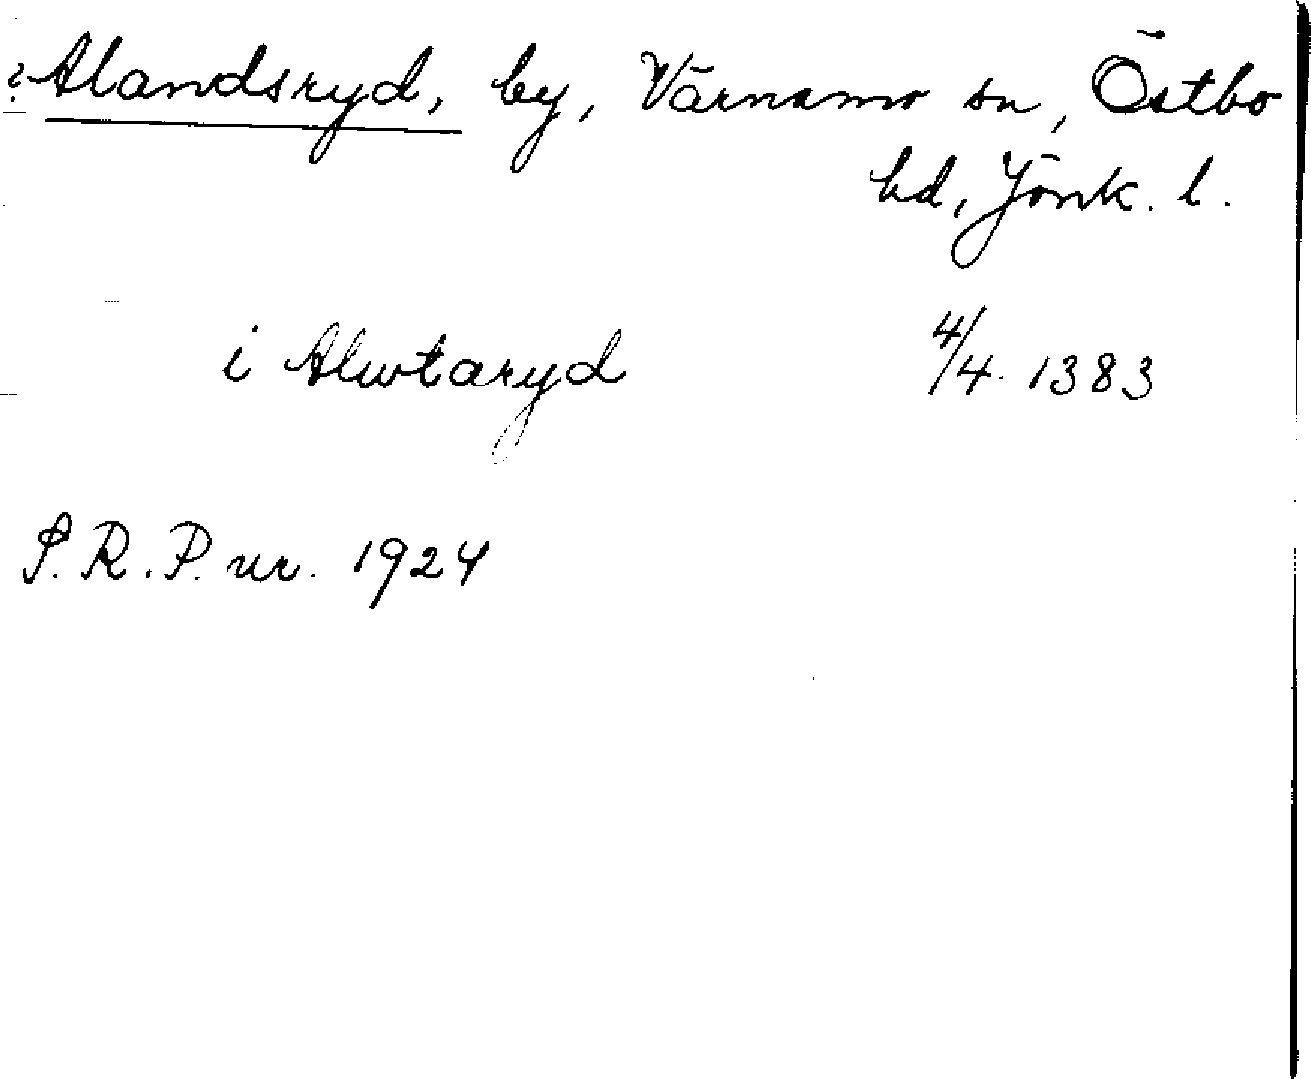 ? Alandsryd, by, Värnamo sn, Östbo
hd, Jönk. l.
i Alwtaryd 4/4. 1383
S. R. P. nr. 1924